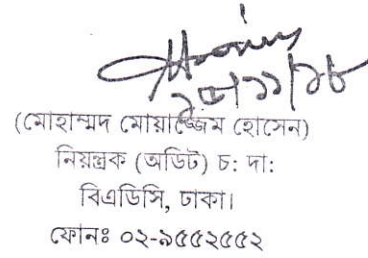 (মোহাম্মদ মোয়াজ্জেম হোসেন)
নিয়ন্ত্রক (অডিট) চ: দা:
বিএডিসি, ঢাকা।
ফোনঃ ০২-৯৫৫২৫৫২